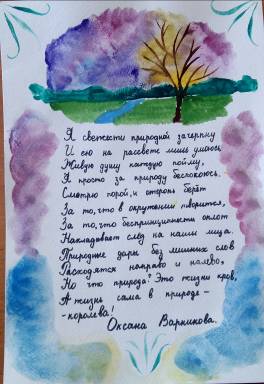 Я свежести природной зачерпну
И ею на рассвете лишь умоюсь,
Живую душу каждую пойму,
Я просто за природу беспокоюсь.
Смотрю порой, и оторопь берёт
За то, что в окружении творится,
За то, что беспринципности оплот
Накладывает след на наши лица.
Природные дары без лишних слов
Расходятся направо и налево,
Но что природа? Это жизни кров,
А жизнь сама в природе -
- королева!
Оксана Варникова.